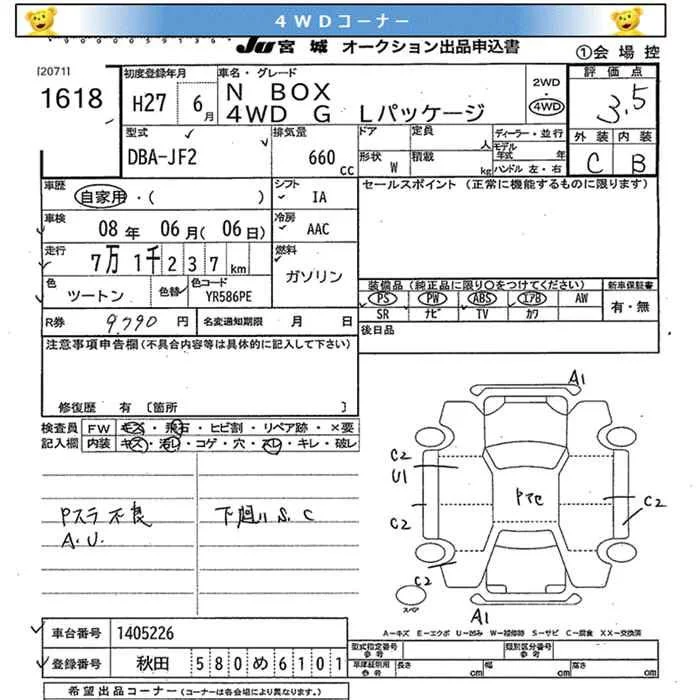 4WDコーナー
JU 宮城 オークション出品申込書
①会場控
[2071]
1618
初度登録年月
H27 6月
車名・グレード
N BOX
4WD G Lパッケージ
2WD
・
4WD
評価点
3.5
外装 内装
C B
型式
DBA-JF2
排気量
660 cc
ドア 定員 人
形状 W 積載 kg
ディーラー・並行
モデル年式 年
ハンドル 左・右
車歴
自家用・( )
シフト
IA
セールスポイント (正常に機能するものに限ります)
車検
08年 06月(06日)
冷房
AAC
走行
7万1千237km
燃料
ガソリン
色
ツートン
色替
色コード
YR586PE
装備品 (純正品に限り○をつけてください)
PS PW ABS エアB AW
SR ナビ TV カワ
新車保証書
有・無
R券 9,790円
名変通知期限 月 日
後日品
注意事項申告欄(不具合内容等は具体的に記入して下さい)
修復歴 有 〔箇所 〕
検査員
記入欄
FW キズ・飛石・ヒビ割・リペア跡・×要
内装 キズ・汚レ・コゲ・穴・スレ・キレ・破レ
Pスラ不良
A.U.
下廻り S. C
A1
C2
U1
C2
C2
Pてc
C2
スペア
A1
A=キズ E=エクボ U=凹み W=補修跡 S=サビ C=腐食 XX=交換済
車台番号
1405226
登録番号
秋田 580め6101
型式指定番号
参考
類別区分番号
参考
車庫証明用
参考
長さ cm
幅 cm
高さ cm
希望出品コーナー (コーナーは各会場により異なります。)